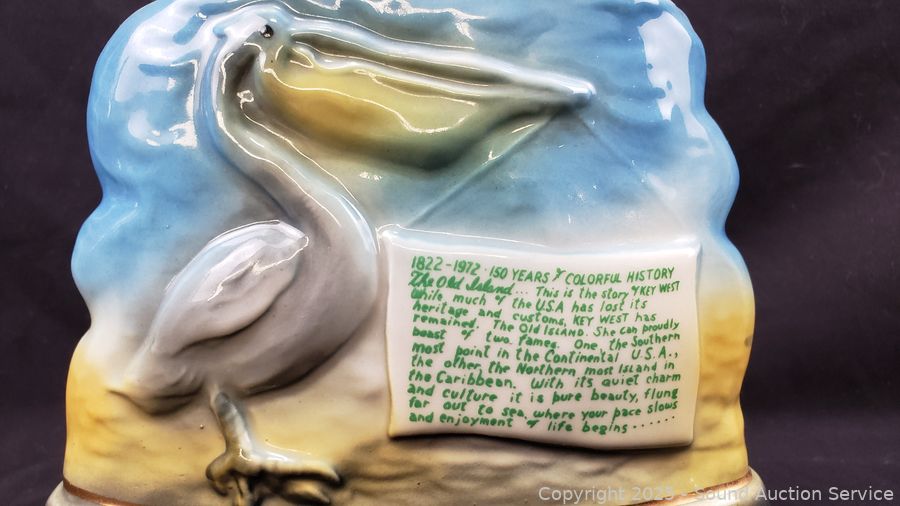 1822-1972 · 150 YEARS of COLORFUL HISTORY
The Old Island... This is the story of KEY WEST
While, much of the U.S.A has lost its
heritage and customs, KEY WEST has
remained. The Old ISLAND. She can proudly
boast of two fames. One, the Southern
most point in the Continental U.S.A.,
the other, the Northern most Island in
the Caribbean. With its quiet charm
and culture it is pure beauty, flung
far out to sea, where your pace slows
and enjoyment of life begins.......
Copyright 2025 - Sound Auction Service